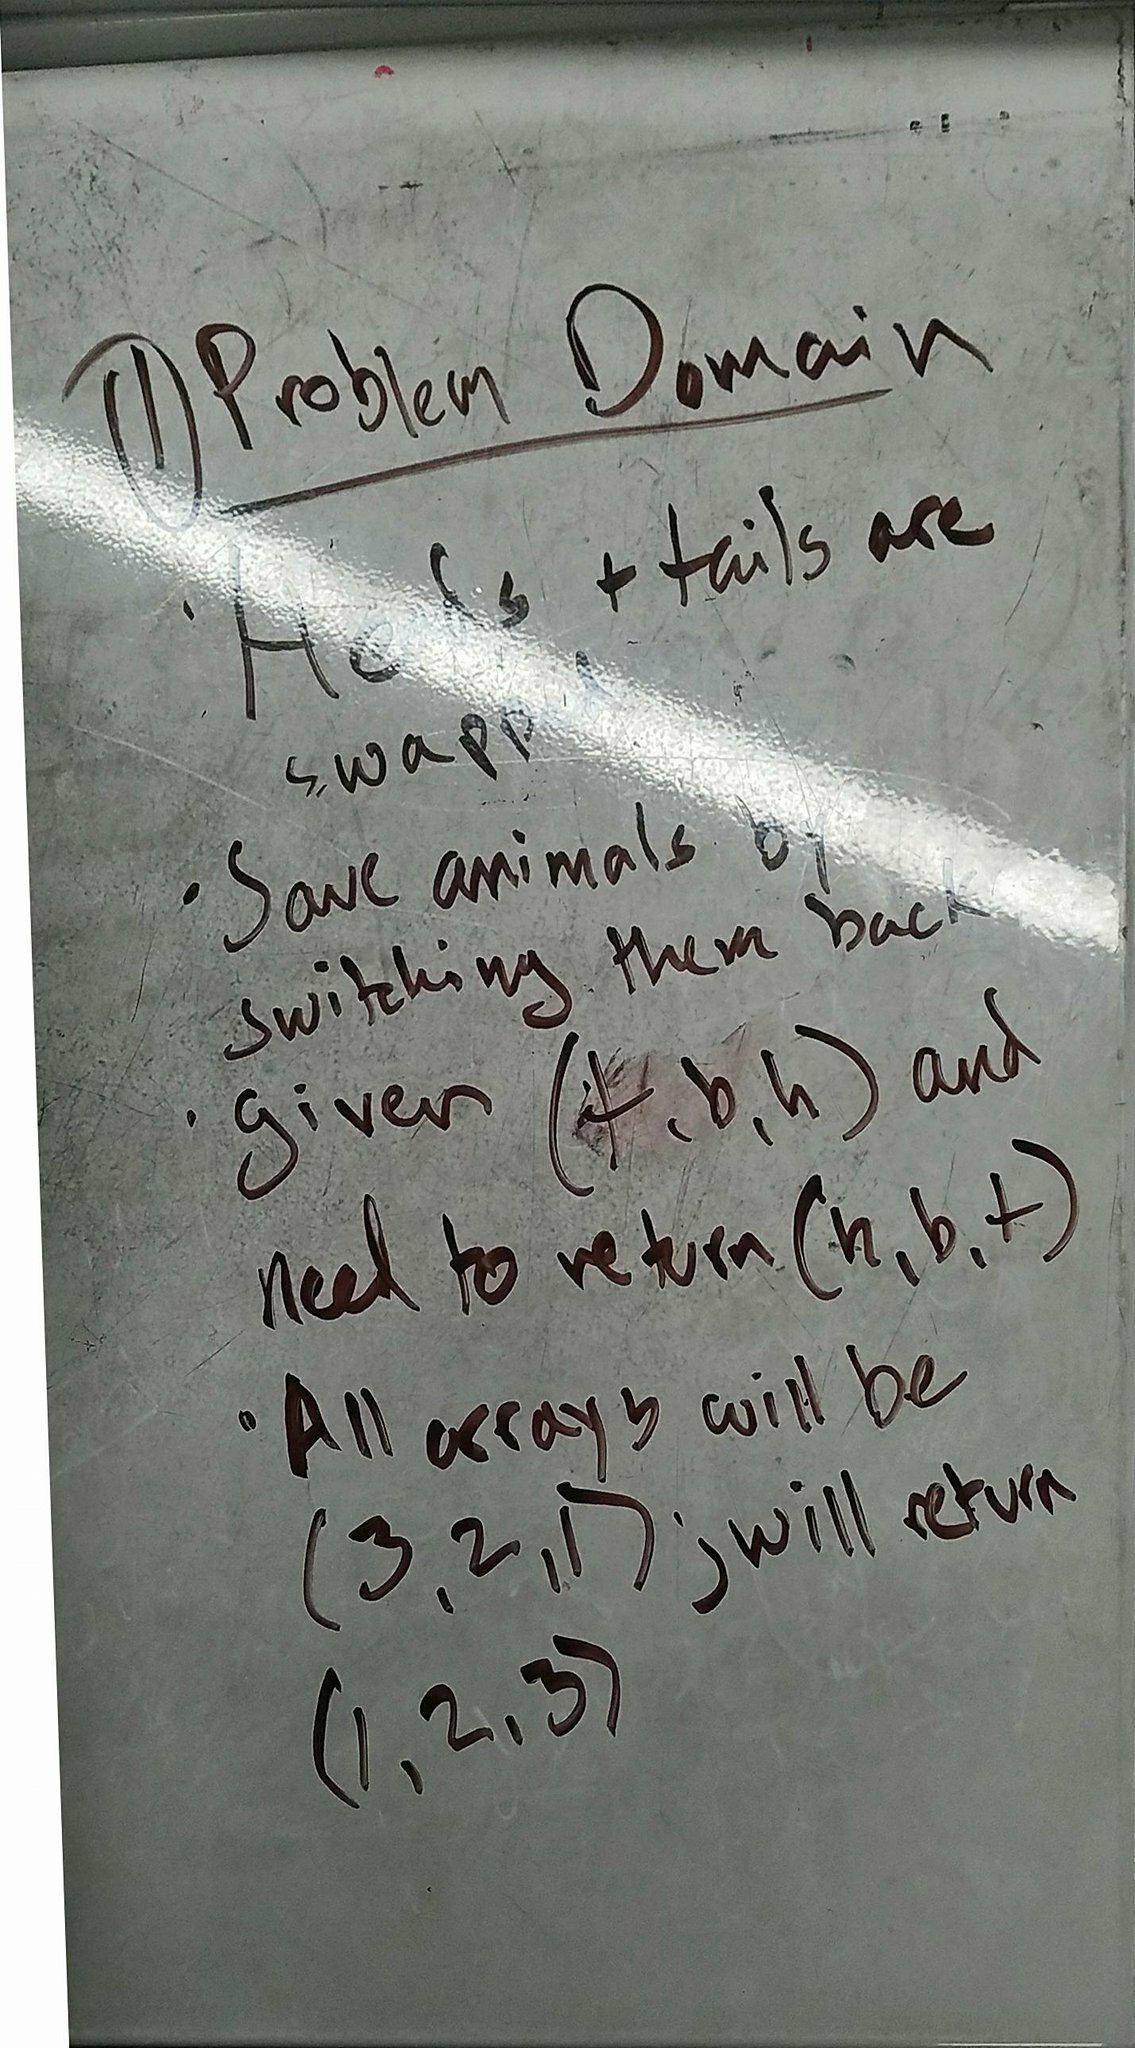 1) Problem Domain
· Heads + tails are
swapped
· Save animals by
switching them back
· given (t, b, h) and
need to return (h, b, t)
· All arrays will be
(3, 2, 1) ; will return
(1, 2, 3)